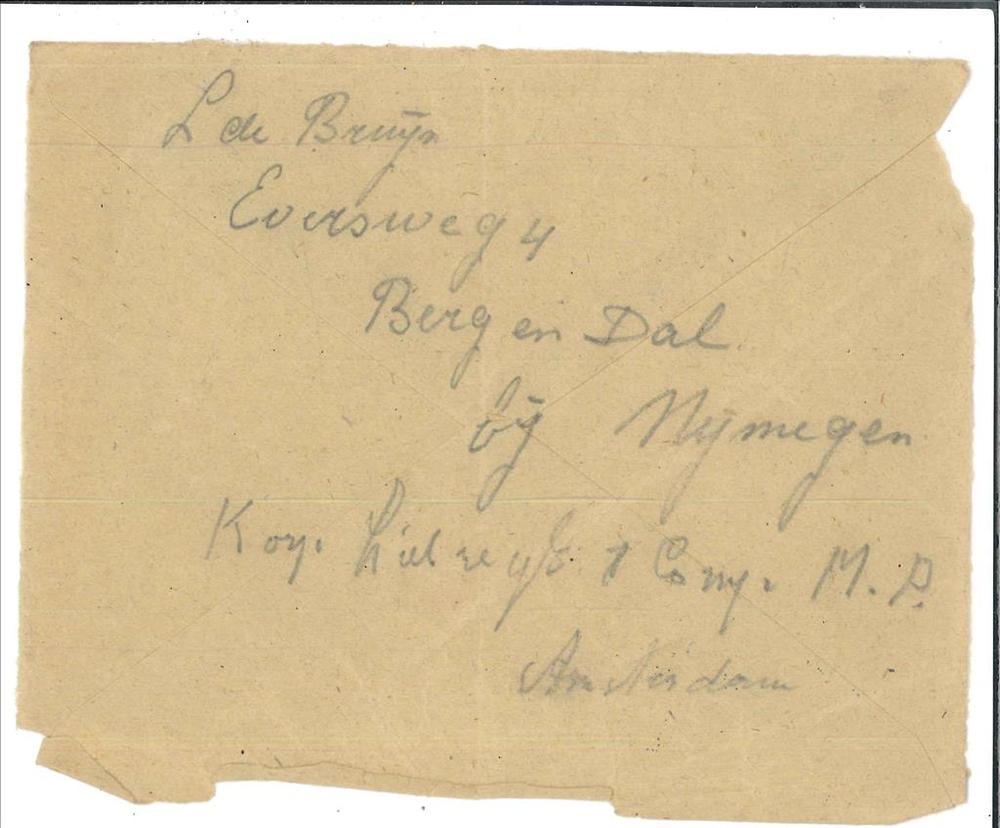 L de Bruijn
Eversweg 4
Berg en Dal
bij Nijmegen
1 Comp. M.P.
Amsterdam